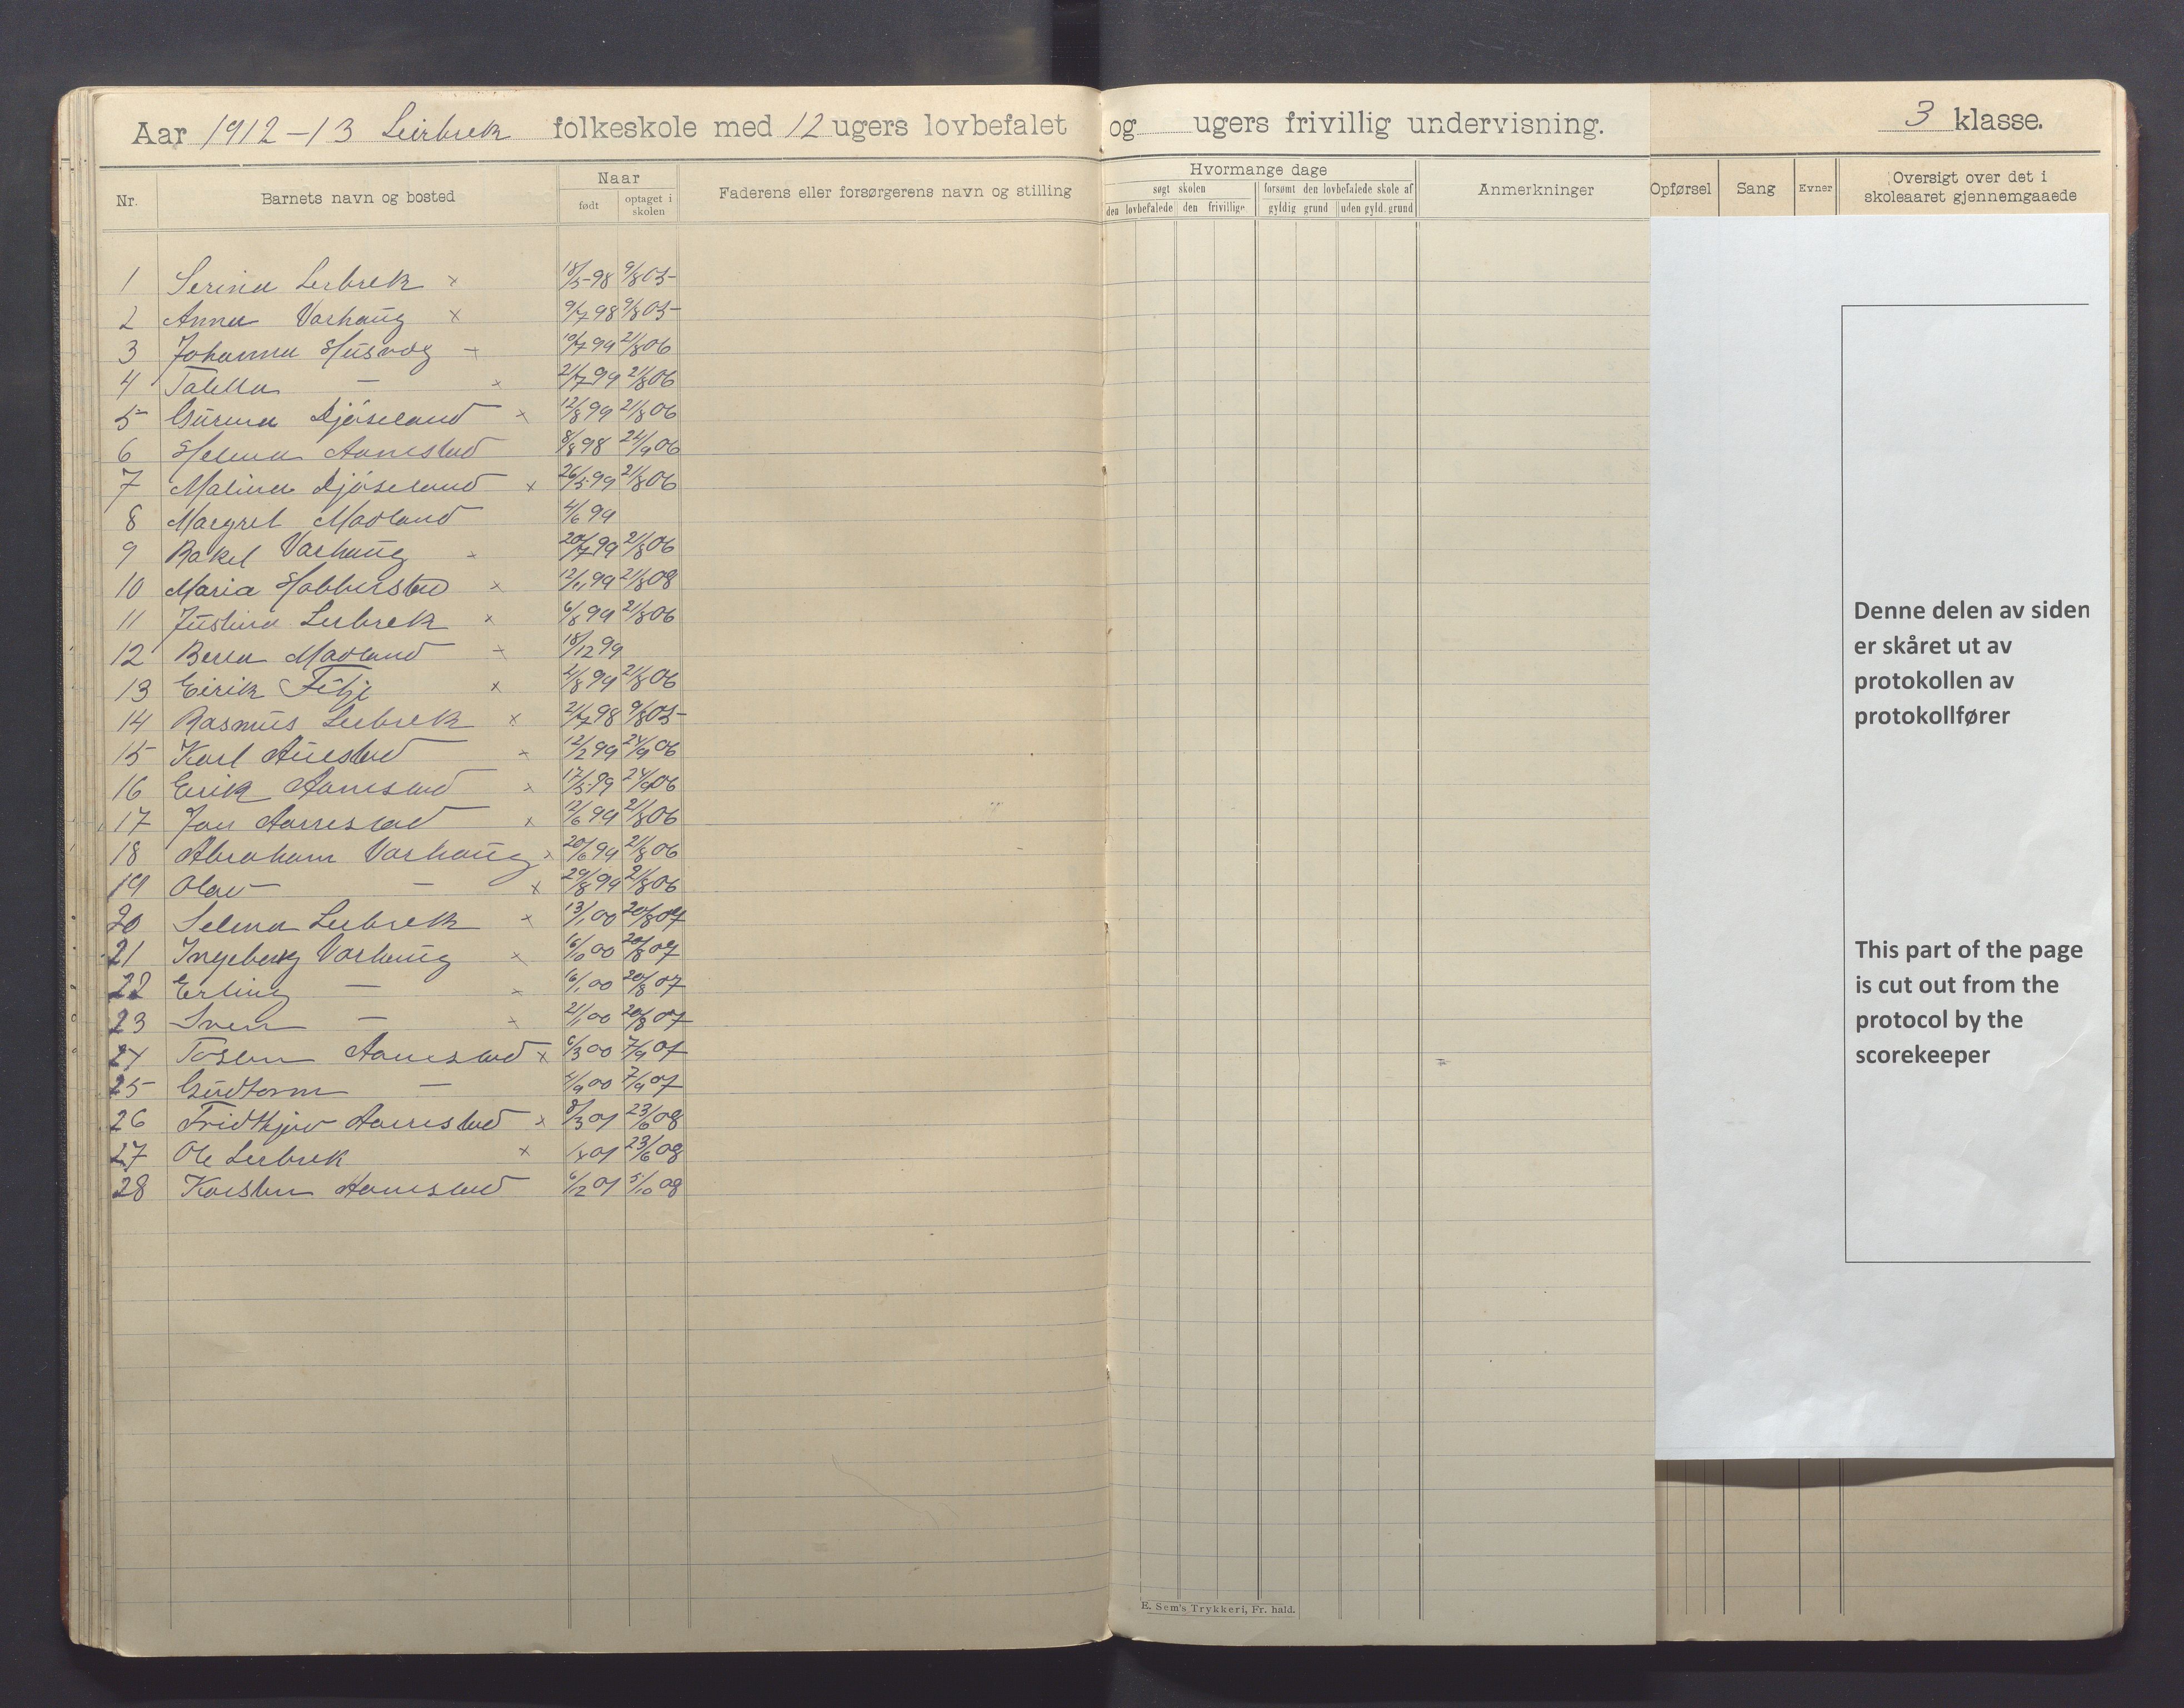 Aar 1912-13 Leirbrek folkeskole med 12 ugers lovbefalet og ugers frivillig undervisning. 3 klasse.
Nr. Barnets navn og bosted Naar født optaget i skolen Faderens eller forsørgerens navn og stilling
Hvormange dage
søgt skolen forsømt den lovbefalede skole af
den lovbefalede den frivillige gyldig grund uden gyld. grund
Anmerkninger
Opførsel Sang Evner Oversigt over det i skoleaaret gjennemgaaede
1 Serina Lerbrek x 18/5-98 9/8 05-
2 Anna Varhaug x 9/7 98 9/8 05-
3 Johanna Husvog 19/7 99 21/8 06
4 Tabitta — x 21/7 99 21/8 06
5 Gurina Djøseland x 12/8 99 21/8 06
6 Helena Aarrestad 8/8 98 24/9 06
7 Malina Djøseland x 26/5-99 21/8 06
8 Margret Madland 4/6 99
9 Rakel Varhaug 20/7 99 21/8 06
10 Maria Hobberstad x 12/11 99 21/8 08
11 Justina Lerbrek x 6/8 99 21/8 06
12 Berta Madland 18/12 99
13 Eirik Fitje x 21/8 99 21/8 06
14 Rasmus Lerbrek x 21/7 98 9/8 05-
15 Karl Auestad x 12/2 99 24/9 06
16 Erik Aarrestad x 17/5-99 24/9 06
17 Jon Aarrestad x 12/6 99 21/8 06
18 Abraham Varhaug x 20/6 99 21/8 06
19 Olav — x 29/8 99 21/8 06
20 Selma Lerbrek x 13/1 00 20/8 07
21 Ingeborg Varhaug x 16/10 00 20/8 07
22 Erling — x 16/1 00 20/8 07
23 Sven — x 21/1 00 20/8 07
24 Tosten Aarrestad x 6/3 00 7/9 07
25 Gudtorm — 4/9 00 7/9 07
26 Fridtjov Aarrestad x 8/3 01 23/6 08
27 Ole Lerbrek x 1/8 01 23/6 08
28 Karsten Aarrestad 6/12 01 5/10 08
E. Sem's Trykkeri, Fr. hald.
Denne delen av siden
er skåret ut av
protokollen av
protokollfører
This part of the page
is cut out from the
protocol by the
scorekeeper